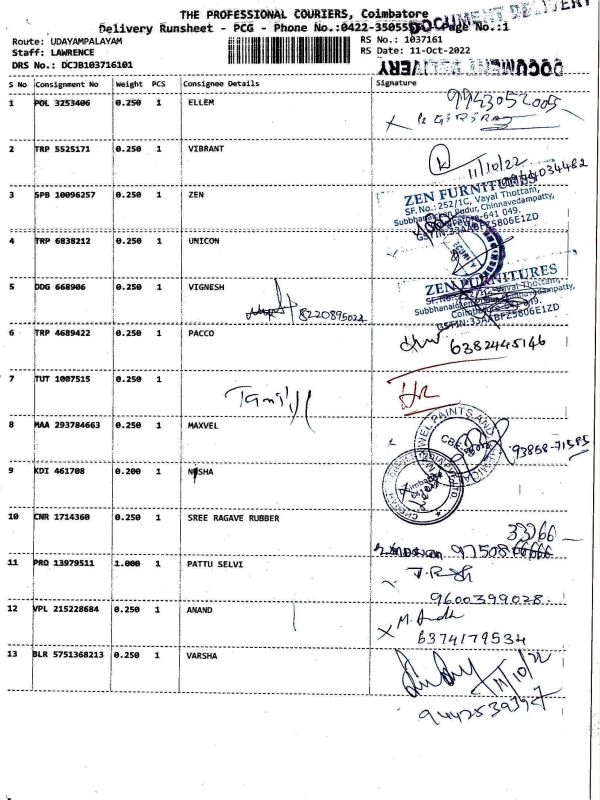 THE PROFESSIONAL COURIERS, Coimbatore
Delivery Runsheet - PCG - Phone No.:0422-35055 Page No.:1
DOCUMENT DELIVERY
Route: UDAYAMPALAYAM RS No.: 1037161
Staff: LAWRENCE RS Date: 11-Oct-2022
DRS No.: DCJB103716101
DOCUMENT DELIVERY
S No Consignment No Weight PCS Consignee Details Signature
1 POL 3253406 0.250 1 ELLEM
9943052005
2 TRP 5525171 0.250 1 VIBRANT
11/10/22
3 SPB 10096257 0.250 1 ZEN
ZEN FURNITURES
SF.No.:252/1C, Vayal Thottam,
Pudur, Chinnavedampatty,
641 049.
4 TRP 6838212 0.250 1 UNICON
5 DDG 668906 0.250 1 VIGNESH
8220895024
ZEN FURNITURES
Coimbatore
GSTIN:33AABFZ5806E1ZD
6 TRP 4689422 0.250 1 PACCO
6382445146
7 TUT 1007515 0.250 1
HR
8 MAA 293784663 0.250 1 MAXVEL
PAINTS AND
CBE
93858-71595
9 KDI 461708 0.200 1 NISHA
10 CNR 1714360 0.250 1 SREE RAGAVE RUBBER
33266
9750866666
11 PRO 13979511 1.000 1 PATTU SELVI
9600399028
12 VPL 215228684 0.250 1 ANAND
6374179534
13 BLR 5751368213 0.250 1 VARSHA
11/10/22